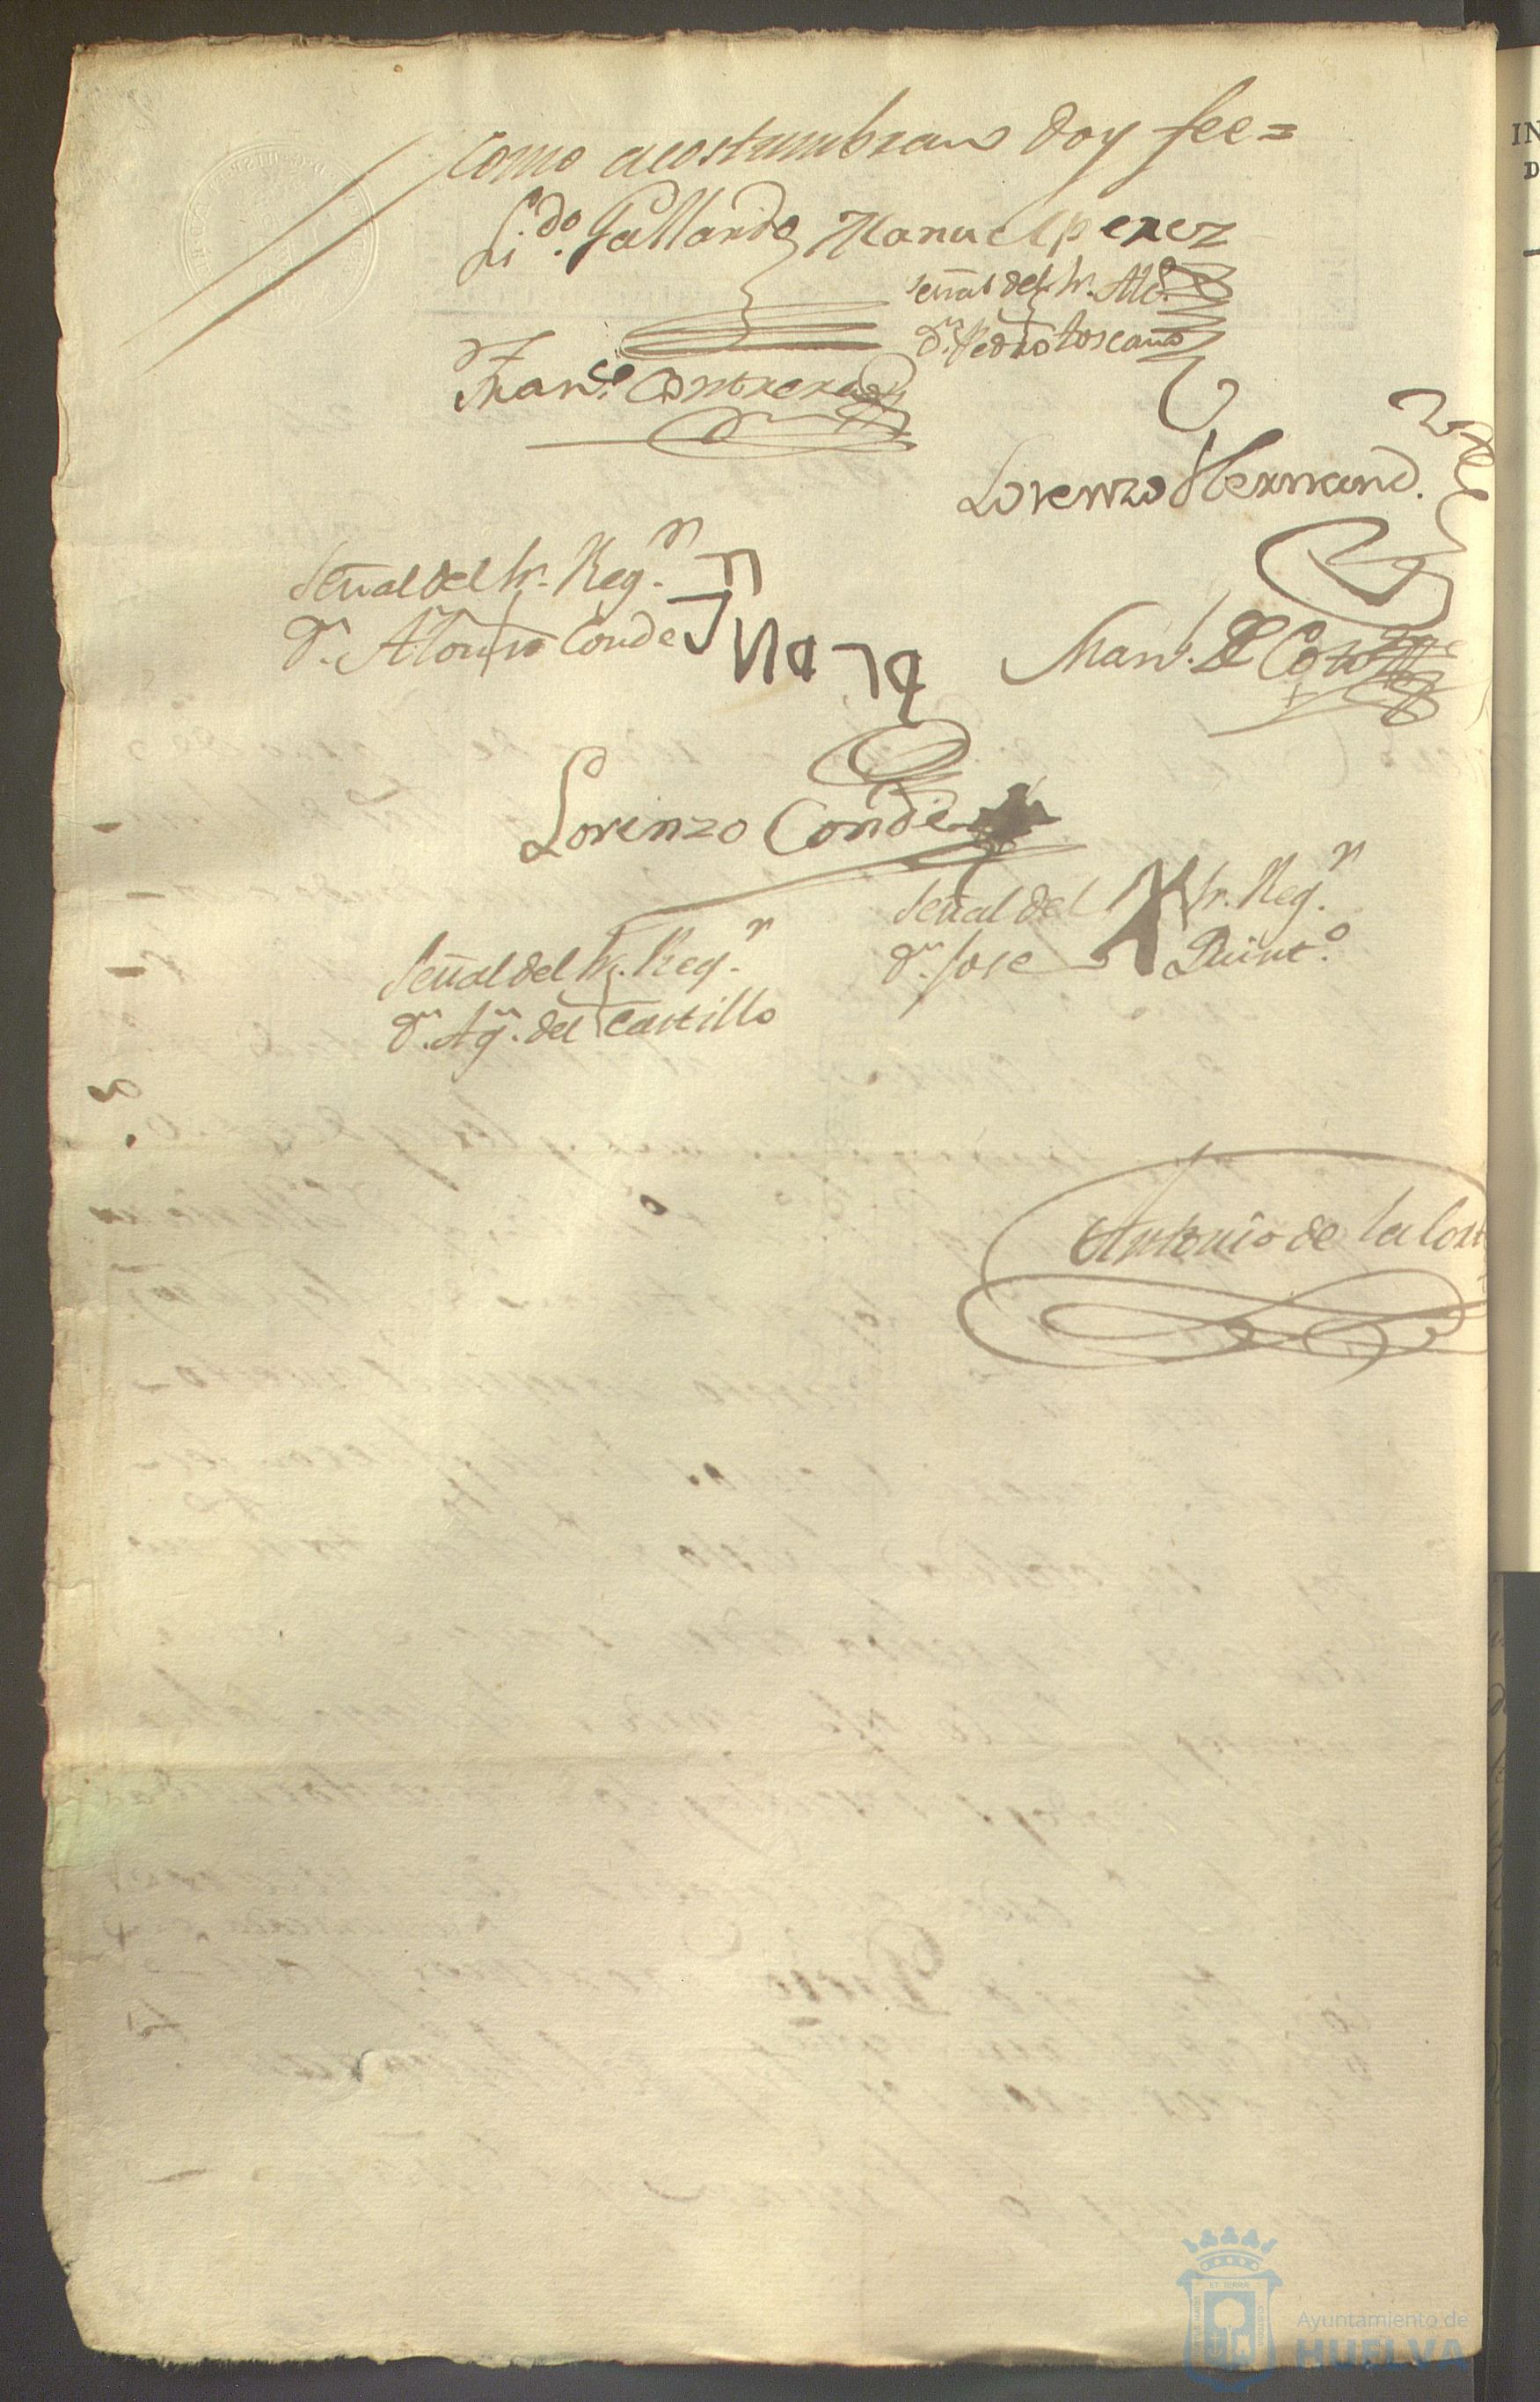 como acostumbran doy fee =
Li.do Gallardo Manuel perez
señal del Sr. Alc.
Dn. Pedro Toscano
Fran.co Contreras
Lorenzo Hernand.
Señal del Sr. Reg.n
Dn. Alonso Conde
Man.l de
Lorenzo Conde
Señal del Sr. Reg.n
Dn. Jose Quint.o
Señal del Sr. Reg.n
Dn. Ag.n del Castillo
Antonio de la Cort
Ayuntamiento de
HUELVA